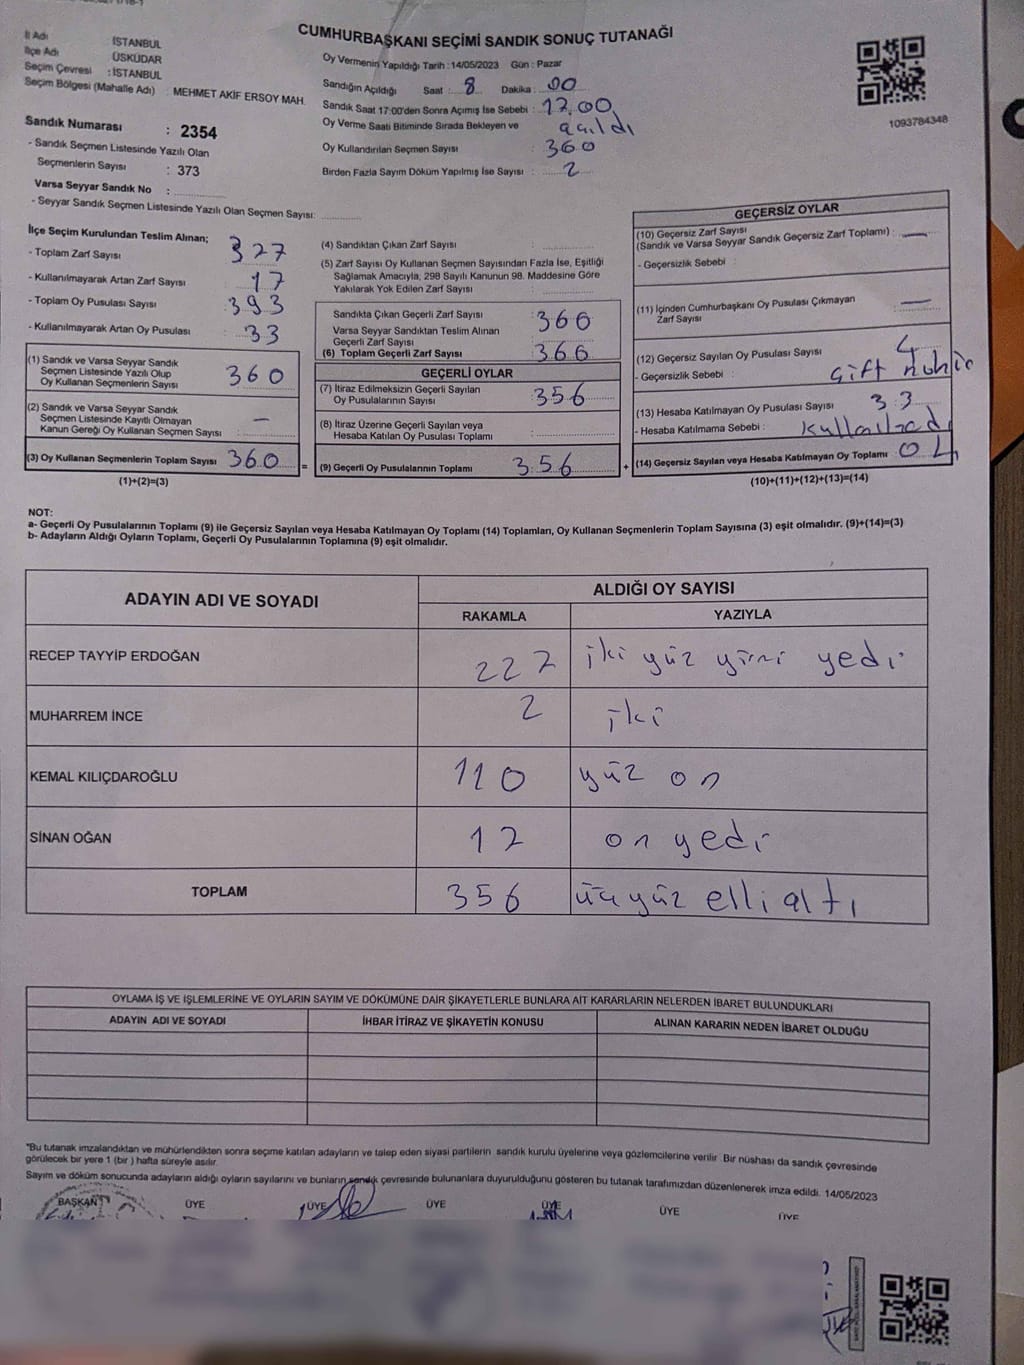 CUMHURBAŞKANI SEÇİMİ SANDIK SONUÇ TUTANAĞI
İl Adı İSTANBUL
İlçe Adı ÜSKÜDAR
Seçim Çevresi : İSTANBUL
Seçim Bölgesi (Mahalle Adı) : MEHMET AKİF ERSOY MAH.
Sandık Numarası : 2354
- Sandık Seçmen Listesinde Yazılı Olan
Seçmenlerin Sayısı : 373
Varsa Seyyar Sandık No :
- Seyyar Sandık Seçmen Listesinde Yazılı Olan Seçmen Sayısı:
Oy Vermenin Yapıldığı Tarih : 14/05/2023 Gün : Pazar
Sandığın Açıldığı Saat : 8 Dakika : 00
Sandık Saat 17:00'den Sonra Açımış İse Sebebi : 17.00
Oy Verme Saati Bitiminde Sırada Bekleyen ve açıldı
Oy Kullandırılan Seçmen Sayısı : 360
Birden Fazla Sayım Döküm Yapılmış İse Sayısı : 2
1093784348
İlçe Seçim Kurulundan Teslim Alınan;
- Toplam Zarf Sayısı : 327
- Kullanılmayarak Artan Zarf Sayısı : 17
- Toplam Oy Pusulası Sayısı : 393
- Kullanılmayarak Artan Oy Pusulası : 33
(1) Sandık ve Varsa Seyyar Sandık
Seçmen Listesinde Yazılı Olup
Oy Kullanan Seçmenlerin Sayısı : 360
(2) Sandık ve Varsa Seyyar Sandık
Seçmen Listesinde Kayıtlı Olmayan
Kanun Gereği Oy Kullanan Seçmen Sayısı : —
(3) Oy Kullanan Seçmenlerin Toplam Sayısı 360 =
(1)+(2)=(3)
(4) Sandıktan Çıkan Zarf Sayısı :
(5) Zarf Sayısı Oy Kullanan Seçmen Sayısından Fazla İse, Eşitliği
Sağlamak Amacıyla, 298 Sayılı Kanunun 98. Maddesine Göre
Yakılarak Yok Edilen Zarf Sayısı :
Sandıkta Çıkan Geçerli Zarf Sayısı : 366
Varsa Seyyar Sandıktan Teslim Alınan
Geçerli Zarf Sayısı :
(6) Toplam Geçerli Zarf Sayısı : 366
GEÇERLİ OYLAR
(7) İtiraz Edilmeksizin Geçerli Sayılan
Oy Pusulalarının Sayısı : 356
(8) İtiraz Üzerine Geçerli Sayılan veya
Hesaba Katılan Oy Pusulası Toplamı :
(9) Geçerli Oy Pusulalarının Toplamı : 356 +
GEÇERSİZ OYLAR
(10) Geçersiz Zarf Sayısı
(Sandık ve Varsa Seyyar Sandık Geçersiz Zarf Toplamı) : —
- Geçersizlik Sebebi :
(11) İçinden Cumhurbaşkanı Oy Pusulası Çıkmayan
Zarf Sayısı : —
(12) Geçersiz Sayılan Oy Pusulası Sayısı : 4
- Geçersizlik Sebebi : Çift
(13) Hesaba Katılmayan Oy Pusulası Sayısı : 33
- Hesaba Katılmama Sebebi :
(14) Geçersiz Sayılan veya Hesaba Katılmayan Oy Toplamı : 04
(10)+(11)+(12)+(13)=(14)
NOT:
a- Geçerli Oy Pusulalarının Toplamı (9) ile Geçersiz Sayılan veya Hesaba Katılmayan Oy Toplamı (14) Toplamları, Oy Kullanan Seçmenlerin Toplam Sayısına (3) eşit olmalıdır. (9)+(14)=(3)
b- Adayların Aldığı Oyların Toplamı, Geçerli Oy Pusulalarının Toplamına (9) eşit olmalıdır.
ADAYIN ADI VE SOYADI ALDIĞI OY SAYISI
RAKAMLA YAZIYLA
RECEP TAYYİP ERDOĞAN 227 iki yüz yirmi yedi
MUHARREM İNCE 2 iki
KEMAL KILIÇDAROĞLU 110 yüz on
SİNAN OĞAN 17 on yedi
TOPLAM 356 üçyüz elli altı
OYLAMA İŞ VE İŞLEMLERİNE VE OYLARIN SAYIM VE DÖKÜMÜNE DAİR ŞİKAYETLERLE BUNLARA AİT KARARLARIN NELERDEN İBARET BULUNDUKLARI
ADAYIN ADI VE SOYADI İHBAR İTİRAZ VE ŞİKAYETİN KONUSU ALINAN KARARIN NEDEN İBARET OLDUĞU
*Bu tutanak imzalandıktan ve mühürlendikten sonra seçime katılan adayların ve talep eden siyasi partilerin sandık kurulu üyelerine veya gözlemcilerine verilir. Bir nüshası da sandık çevresinde
görülecek bir yere 1 (bir) hafta süreyle asılır.
Sayım ve döküm sonucunda adayların aldığı oyların sayılarını ve bunların sandık çevresinde bulunanlara duyurulduğunu gösteren bu tutanak tarafımızdan düzenlenerek imza edildi. 14/05/2023
BAŞKAN ÜYE ÜYE ÜYE ÜYE ÜYE ÜYE